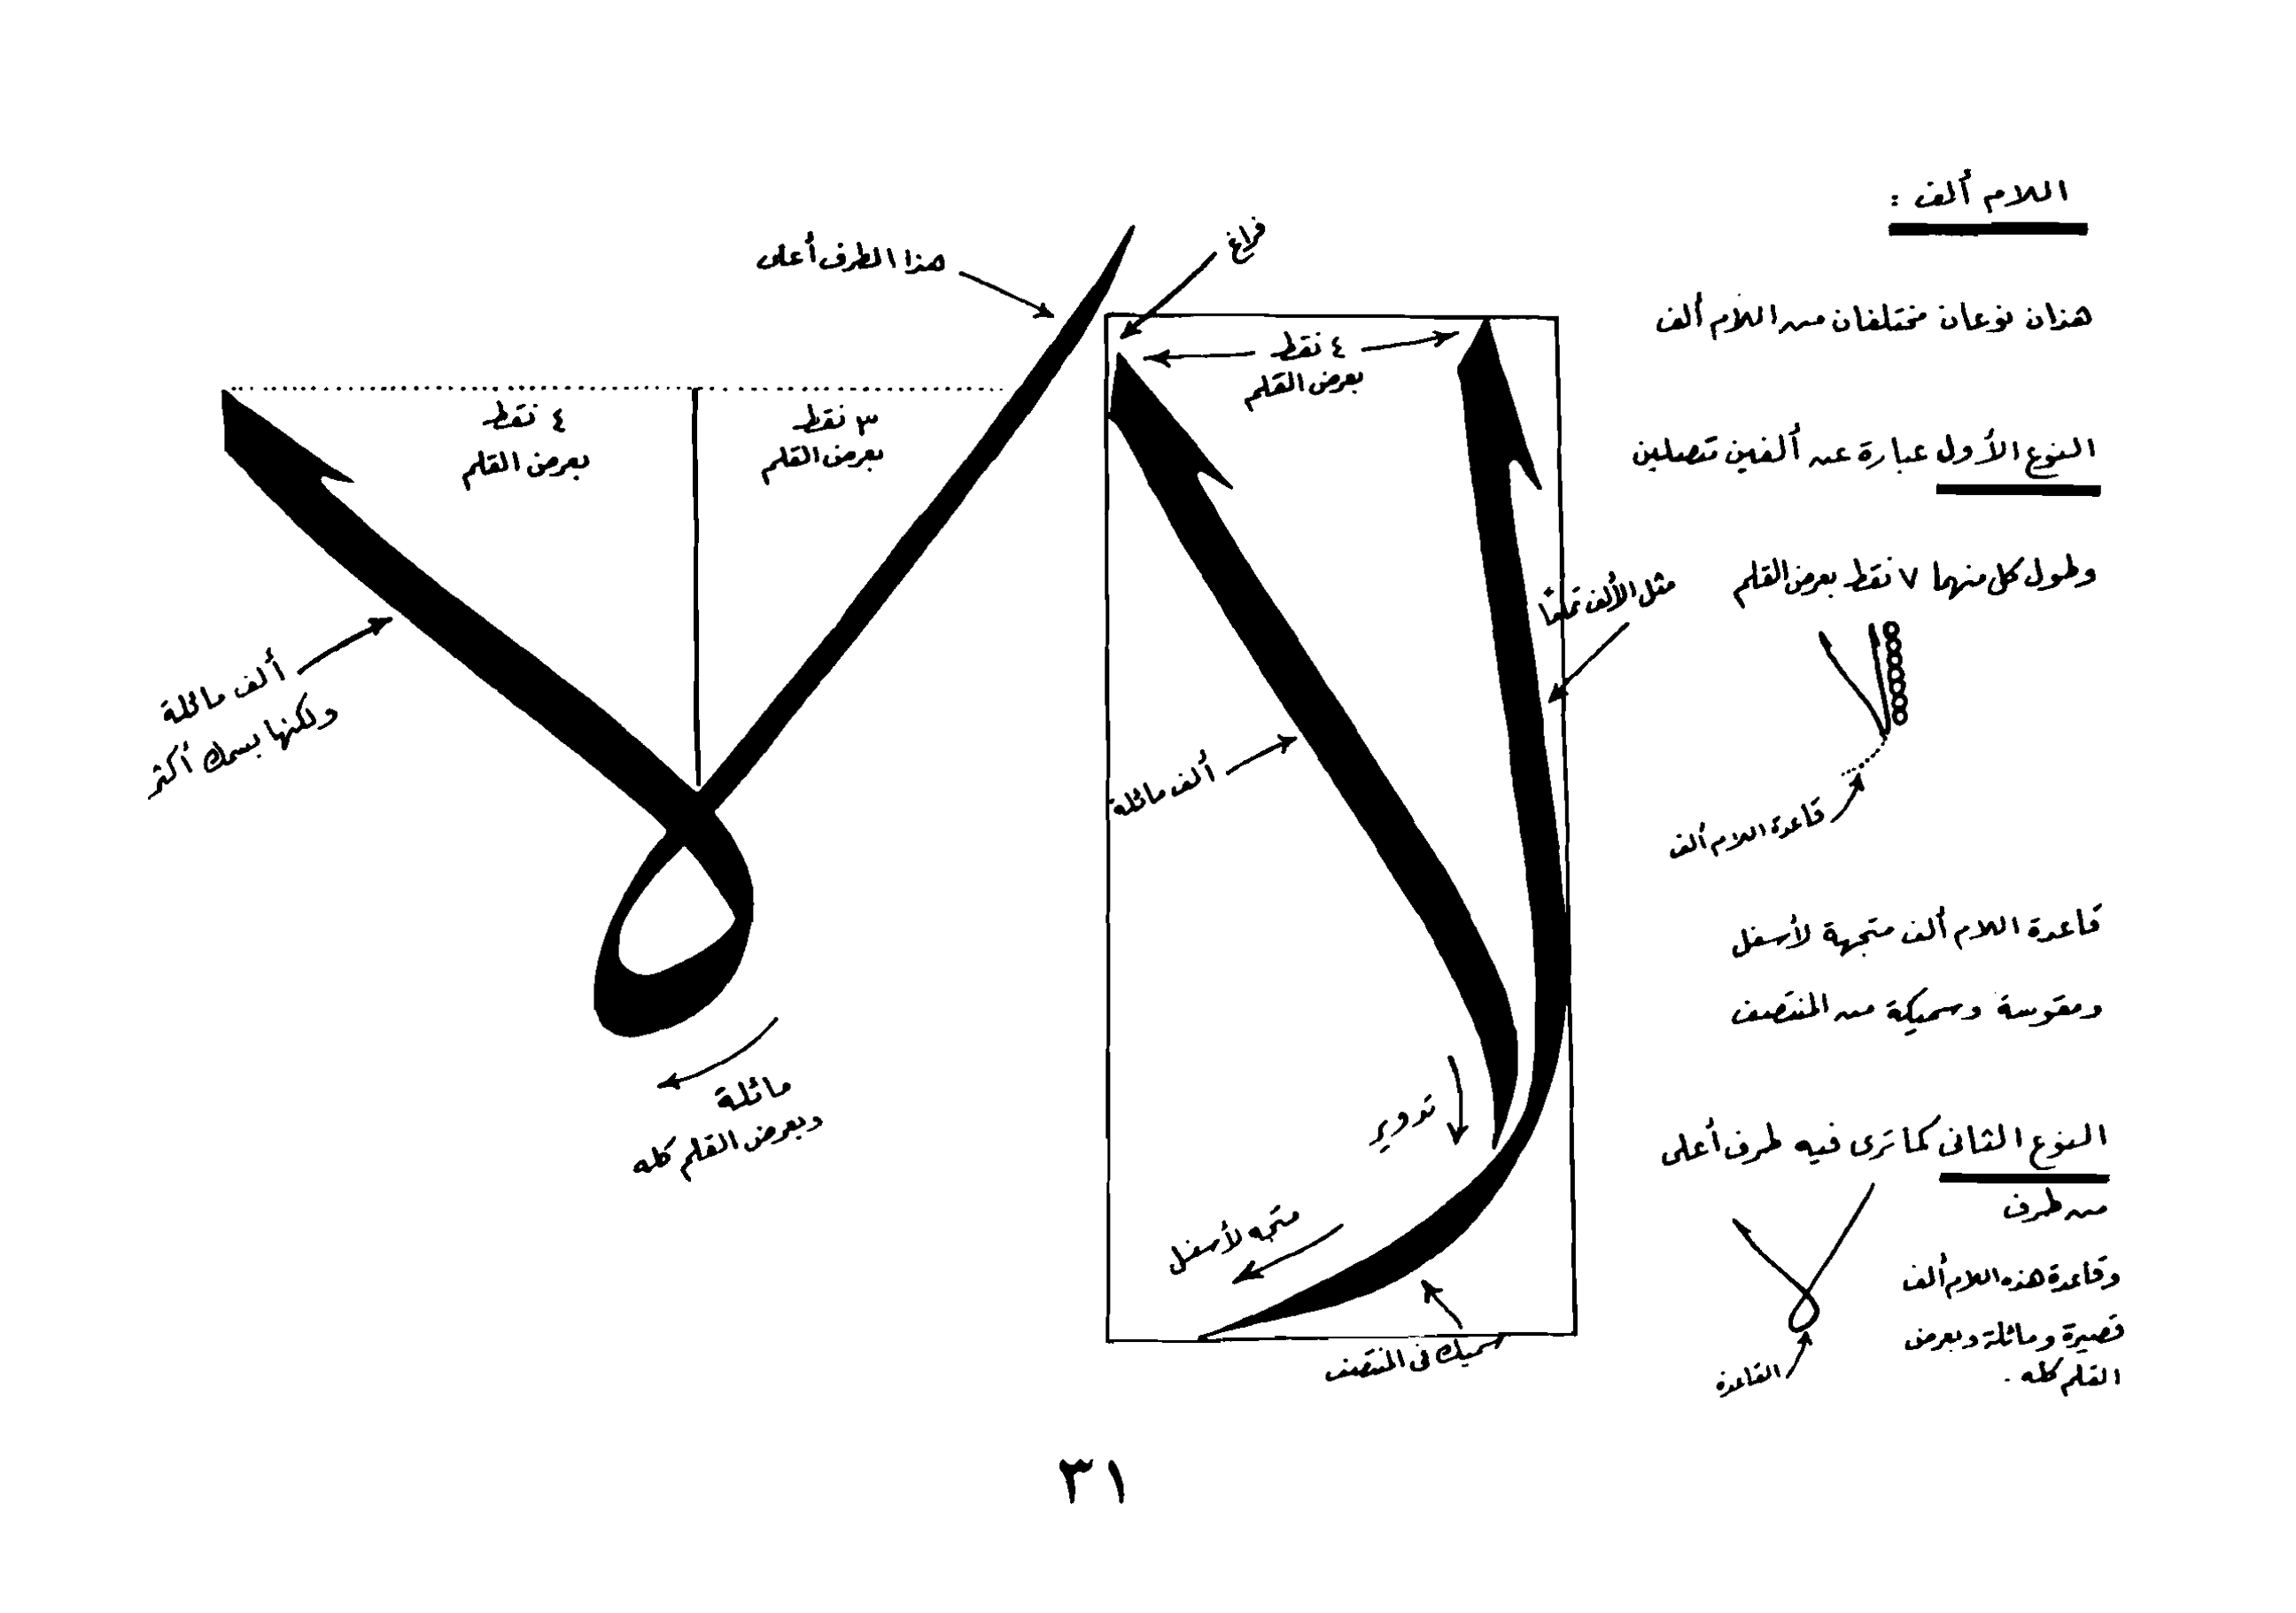 اللام ألف :
هذان نوعان مختلفان من اللام ألف
النوع الأول عبارة عن ألفين متصلين
وطول كل منهما ٧ نقط بعرض القلم
قاعدة اللام ألف
قاعدة اللام ألف متجهة لأسفل
ومقوسة وسميكة من المنتصف
النوع الثانى كما ترى فيه طرف أعلى
من طرف
وقاعدة هذه اللام ألف
قصيرة ومائلة وبعرض
القلم كله .
القاعدة
فراغ
٤ نقط
بعرض القلم
مثل الألف تماماً
ألف مائلة
تدوير
متجه لأسفل
سميك فى المنتصف
هذا الطرف أعلى
٣ نقط
بعرض القلم
٤ نقط
بعرض القلم
ألف مائلة
ولكنها بسمك أكثر
مائلة
وبعرض القلم كله
٣١